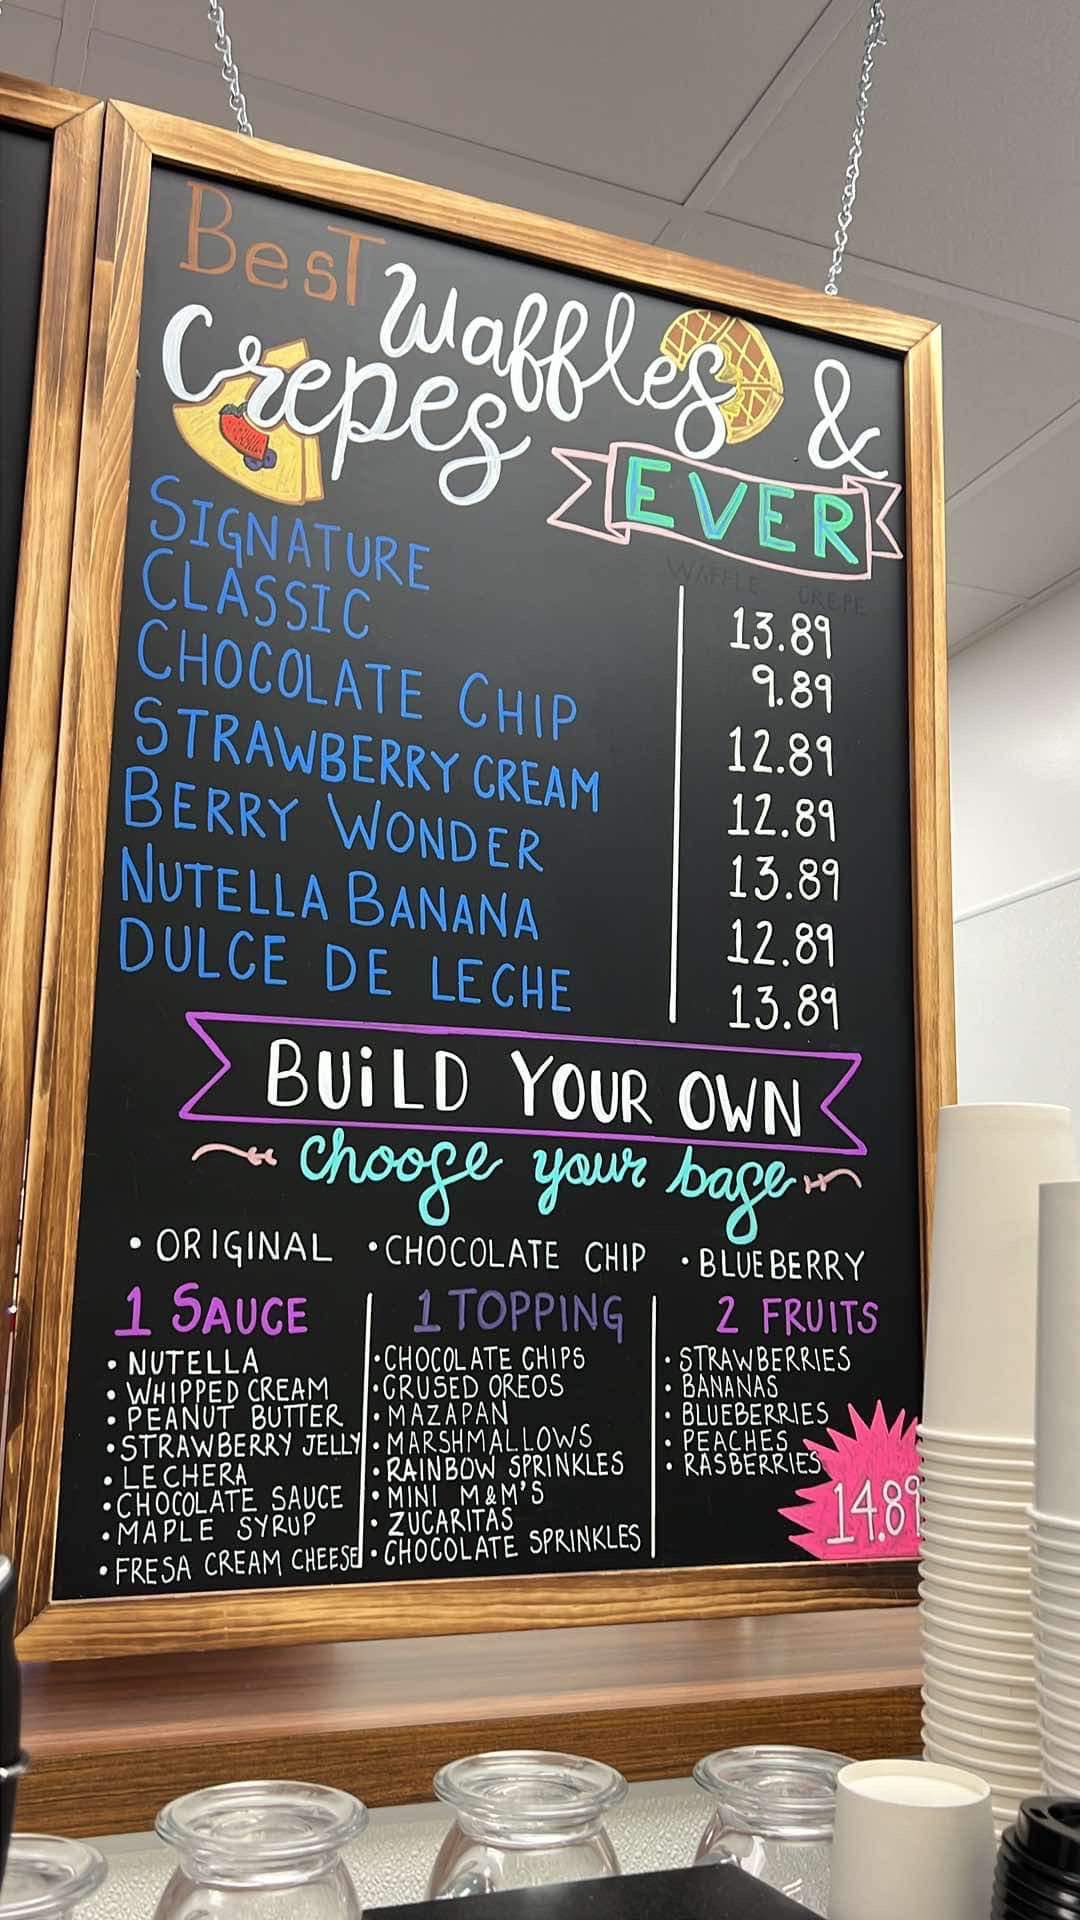 BesT Waffles &
Crepes
EVER
WAFFLE CREPE
SIGNATURE 13.89
CLASSIC 9.89
CHOCOLATE CHIP 12.89
STRAWBERRY CREAM 12.89
BERRY WONDER 13.89
NUTELLA BANANA 12.89
DULCE DE LECHE 13.89
BUiLD YOUR OWN
choose your base
• ORIGINAL • CHOCOLATE CHIP • BLUEBERRY
1 SAUCE
• NUTELLA
• WHIPPED CREAM
• PEANUT BUTTER
• STRAWBERRY JELLY
• LECHERA
• CHOCOLATE SAUCE
• MAPLE SYRUP
• FRESA CREAM CHEESE
1 TOPPING
• CHOCOLATE CHIPS
• CRUSED OREOS
• MAZAPAN
• MARSHMALLOWS
• RAINBOW SPRINKLES
• MINI M&M'S
• ZUCARITAS
• CHOCOLATE SPRINKLES
2 FRUITS
• STRAWBERRIES
• BANANAS
• BLUEBERRIES
• PEACHES
• RASBERRIES
14.89